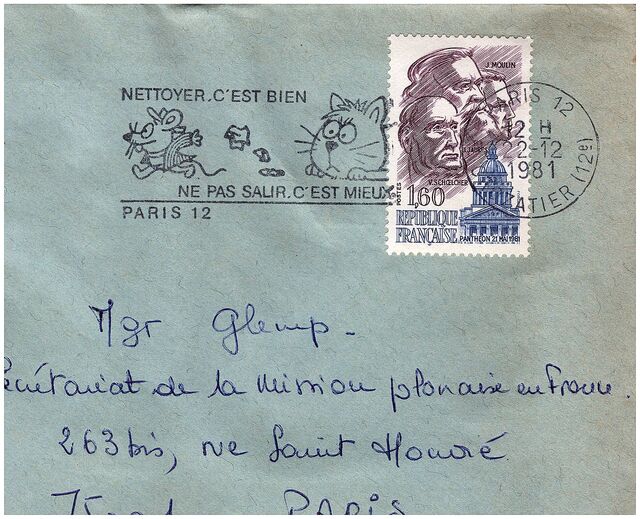 NETTOYER.C'EST BIEN
NE PAS SALIR.C'EST MIEUX
PARIS 12
J. MOULIN
J. JAURES
V. SCHŒLCHER
POSTES
1,60
REPUBLIQUE
FRANÇAISE
PANTHEON 21 MAI 1981
PARIS 12
12 H
22-12
1981
(12e)
Mgr Glemp.
Secrétariat de la Mission polonaise en France.
263 bis, rue Saint Honoré
PARIS